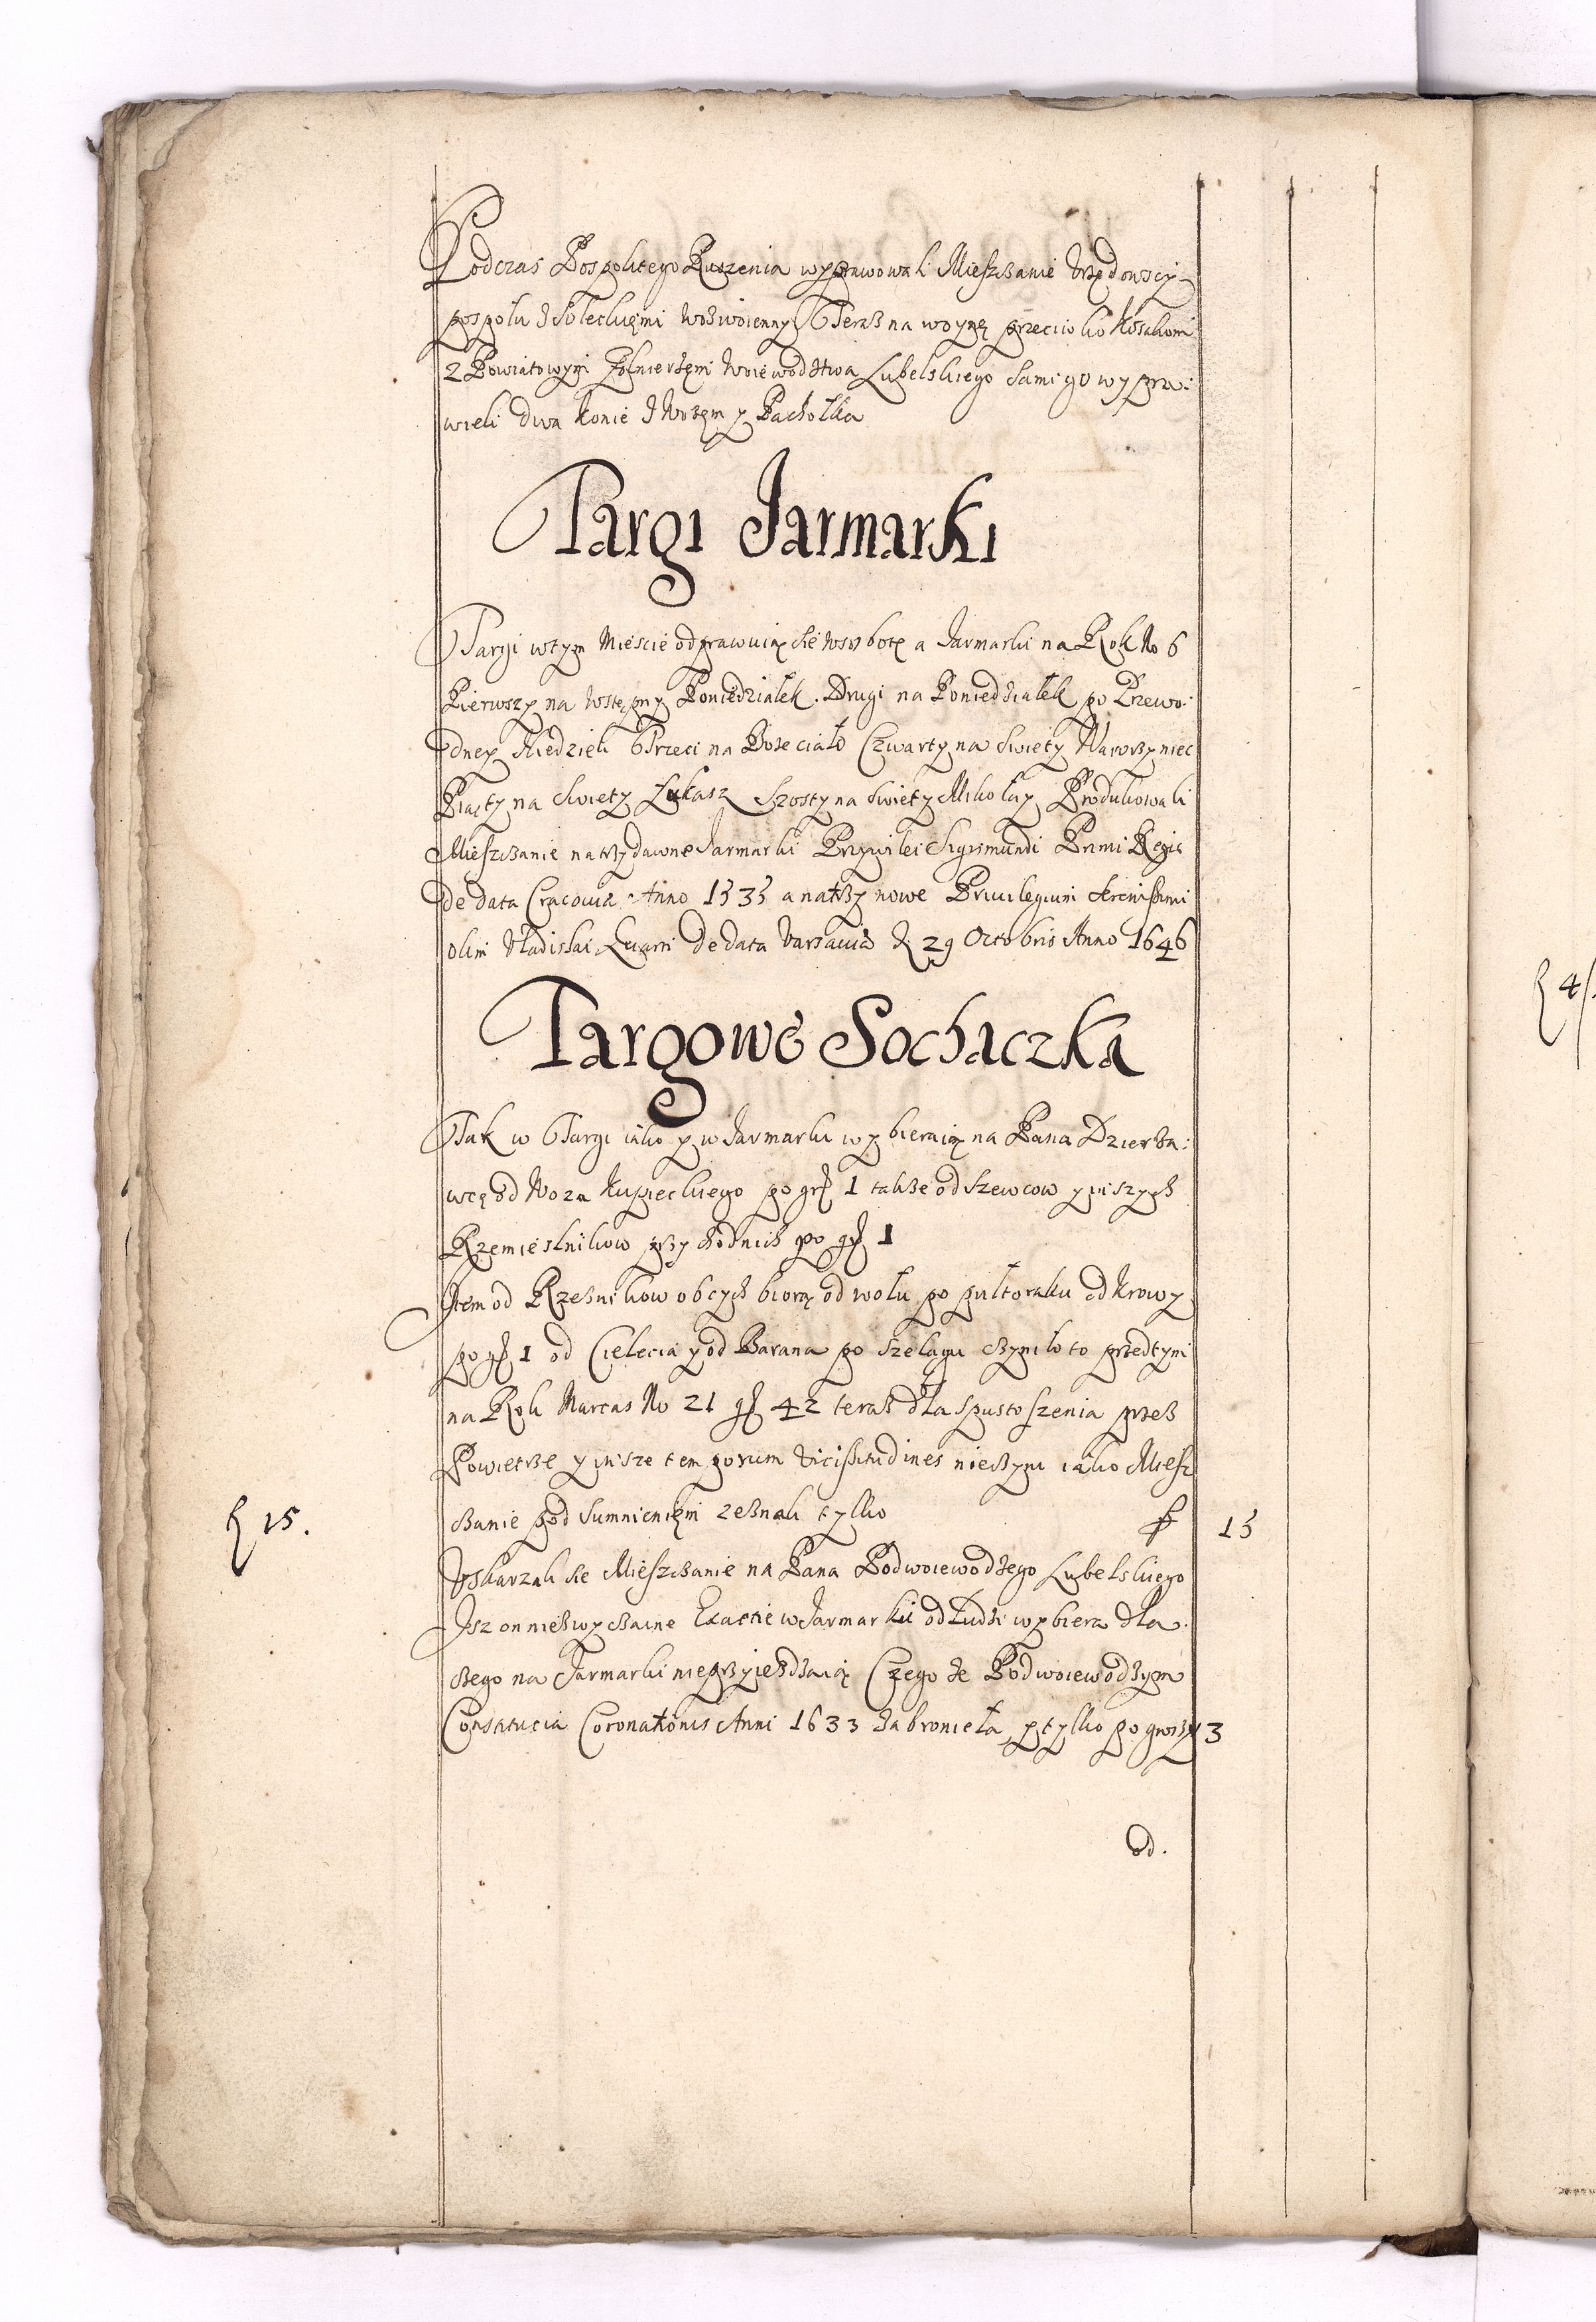 Podczas Pospolitego Ruszenia wyprawowali Mieszczanie Urzędowscy
pospolu z Soleckięmi woz woienny Teraz na woynę przeciwko Kozakom
z Powiatowymi Żołnierzęmi Woiewodztwa Lubelskiego sami go wypra:
wieli dwa konie z Wozęm y Pachołka
Targi Jarmarki
Targi w tym Miescie odprawuią sie w Sobotę a Jarmarki na Rok No 6
Pierwszy na Wstępny Poniedziałek. Drugi na Poniedziałek po Przewo:
dney Niedzieli Trzeci na Boze ciało Czwarty na Swięty Wawrzyniec
Piąty na Swięty Łukasz Szosty na Swięty Mikołay Produkowali
Mieszczanie na trzy dawne Jarmarki Przywilei Sigismundi Primi Regis
de data Cracoviæ Anno 1535 a na trzy nowe Privilegium Serenissimi
olim Vladislai Quarti de data Varsaviæ d 29 Octobris Anno 1646
Targowe Sochaczka
Tak w Targi iako y w Jarmarki wybieraią na Pana Dzierza:
wcę od Woza kupieckiego po gr 1 takze od szewcow y inszych
Rzemieslnikow przychodnich po gr 1
Item od Rzeznikow obcych biorą od wołu po pułtoraku od krowy
po gr 1 od Cielecia y od Barana po szelągu czyniło to przedtym
na Rok Marcas No 21 gr 42 teraz dla spustoszenia przez
Powietrze y insze temporum vicissitudines nieczyni iako Miesz
czanie pod sumnienięm zeznali tylko f 15
ξ 15.
Uskarzali sie Mieszczanie na Pana Podwoiewodzego Lubelskiego
Isz on niezwyczaine Exactie w Jarmarki od Ludzi wybiera dla
czego na Jarmarki nieprzyiezdzaią Czego ze Podwoiewodzym
Constitucia Coronationis Anni 1633 zabroniełа y tylko po groszy 3
od.
ξ 4